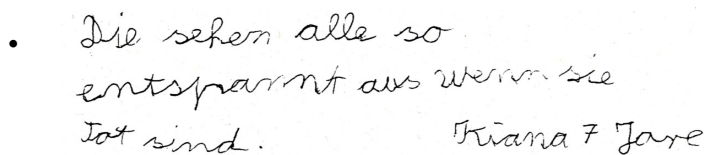 • Die sehen alle so
entspannt aus wenn sie
Tot sind. Kiana 7 Jare